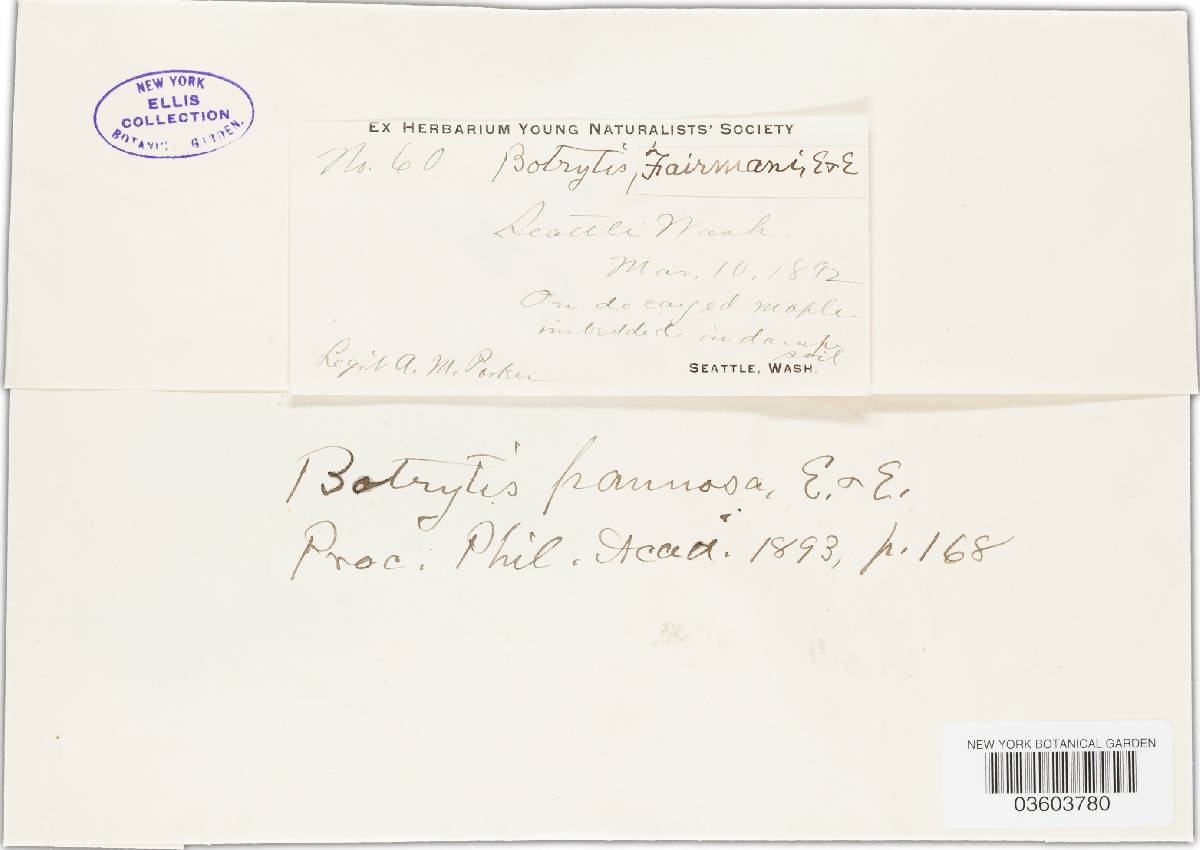 NEW YORK
ELLIS
COLLECTION
BOTANICAL GARDEN.
EX HERBARIUM YOUNG NATURALISTS' SOCIETY
No. 60. Botrytis, Fairmani, E & E
Seattle Wash.
Mar. 10, 1892
On decayed maple
imbedded in damp
soil
Legit A. M. Parker
SEATTLE, WASH.
Botrytis pannosa, E. & E.
Proc. Phil. Acad. 1893, p. 168
NEW YORK BOTANICAL GARDEN
03603780